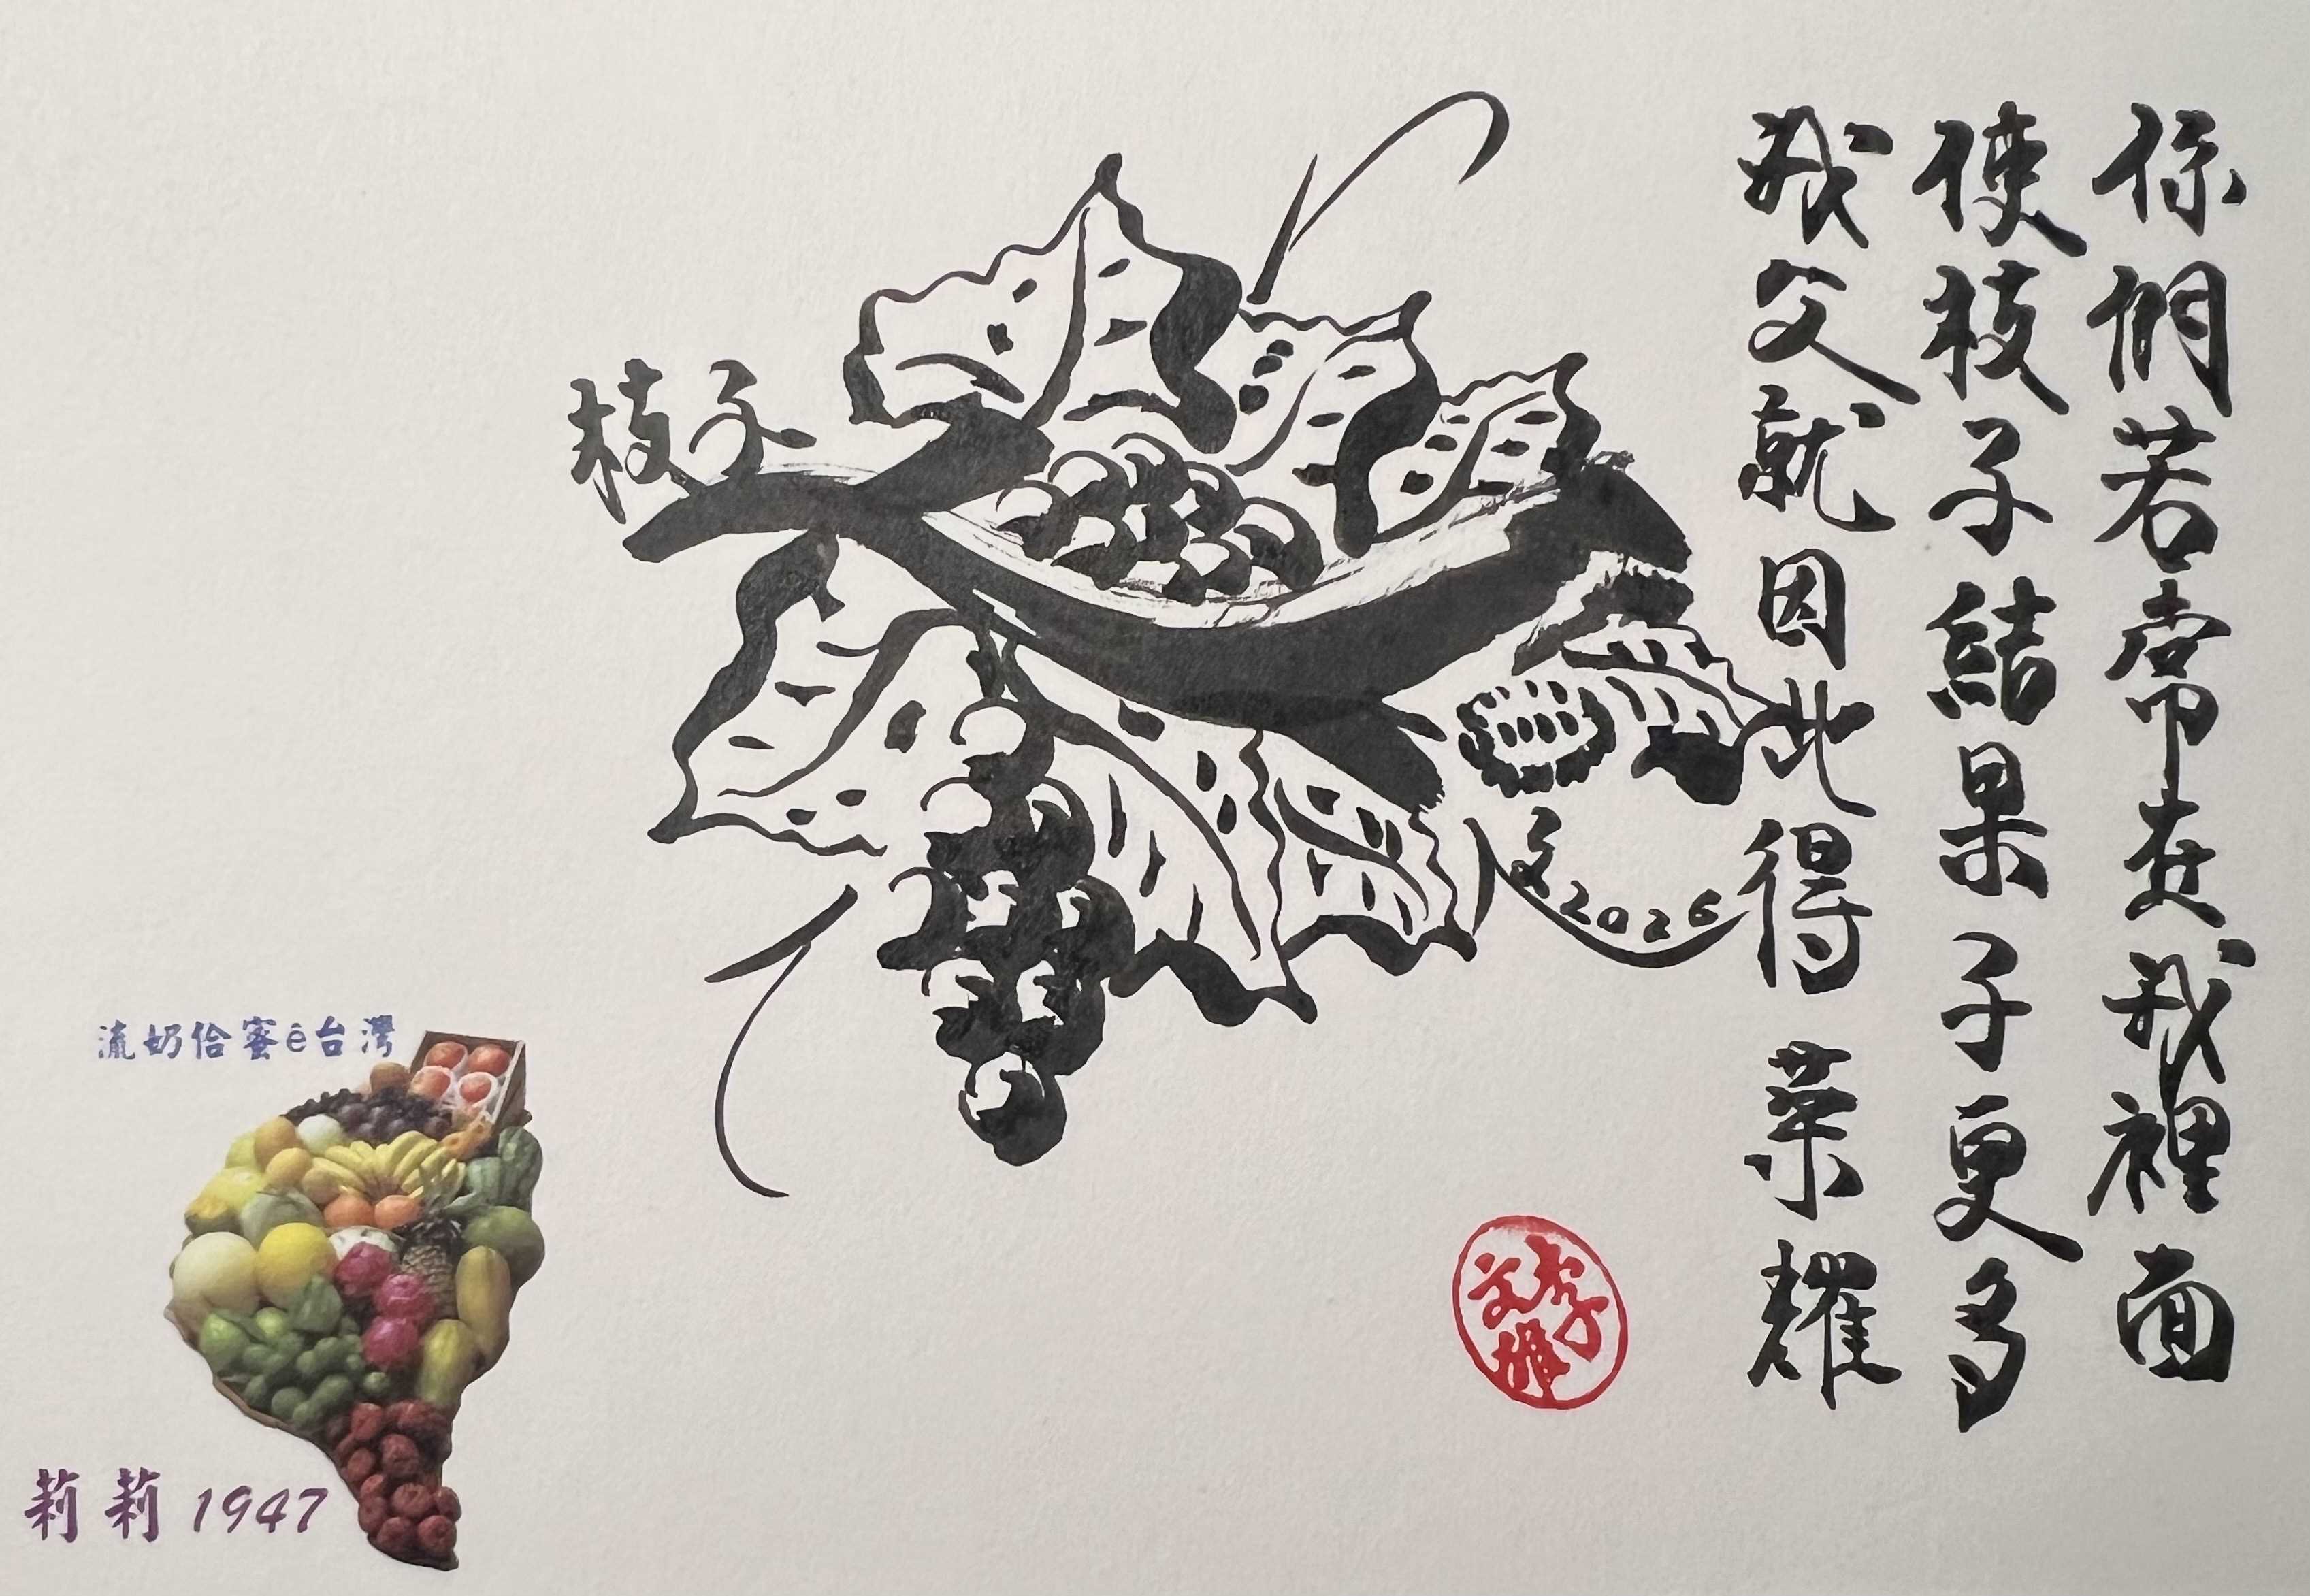 你們若常在我裡面
使枝子結果子更多
我父就因此得荣耀
枝子
文2026
流奶佮蜜ê台灣
莉莉 1947